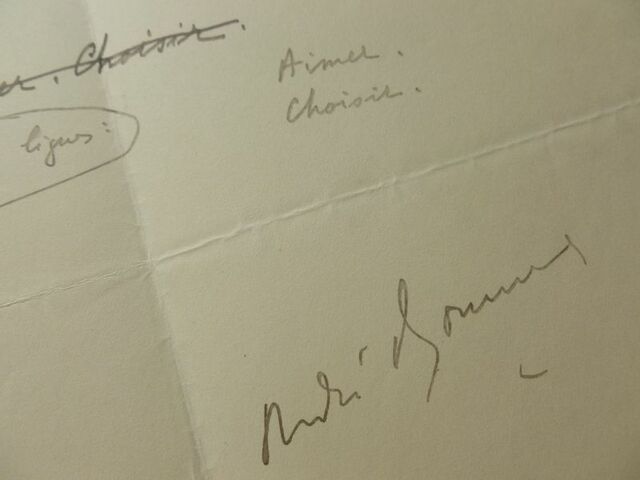 er. Choisir.
Aimer.
Choisir.
lignes:
André